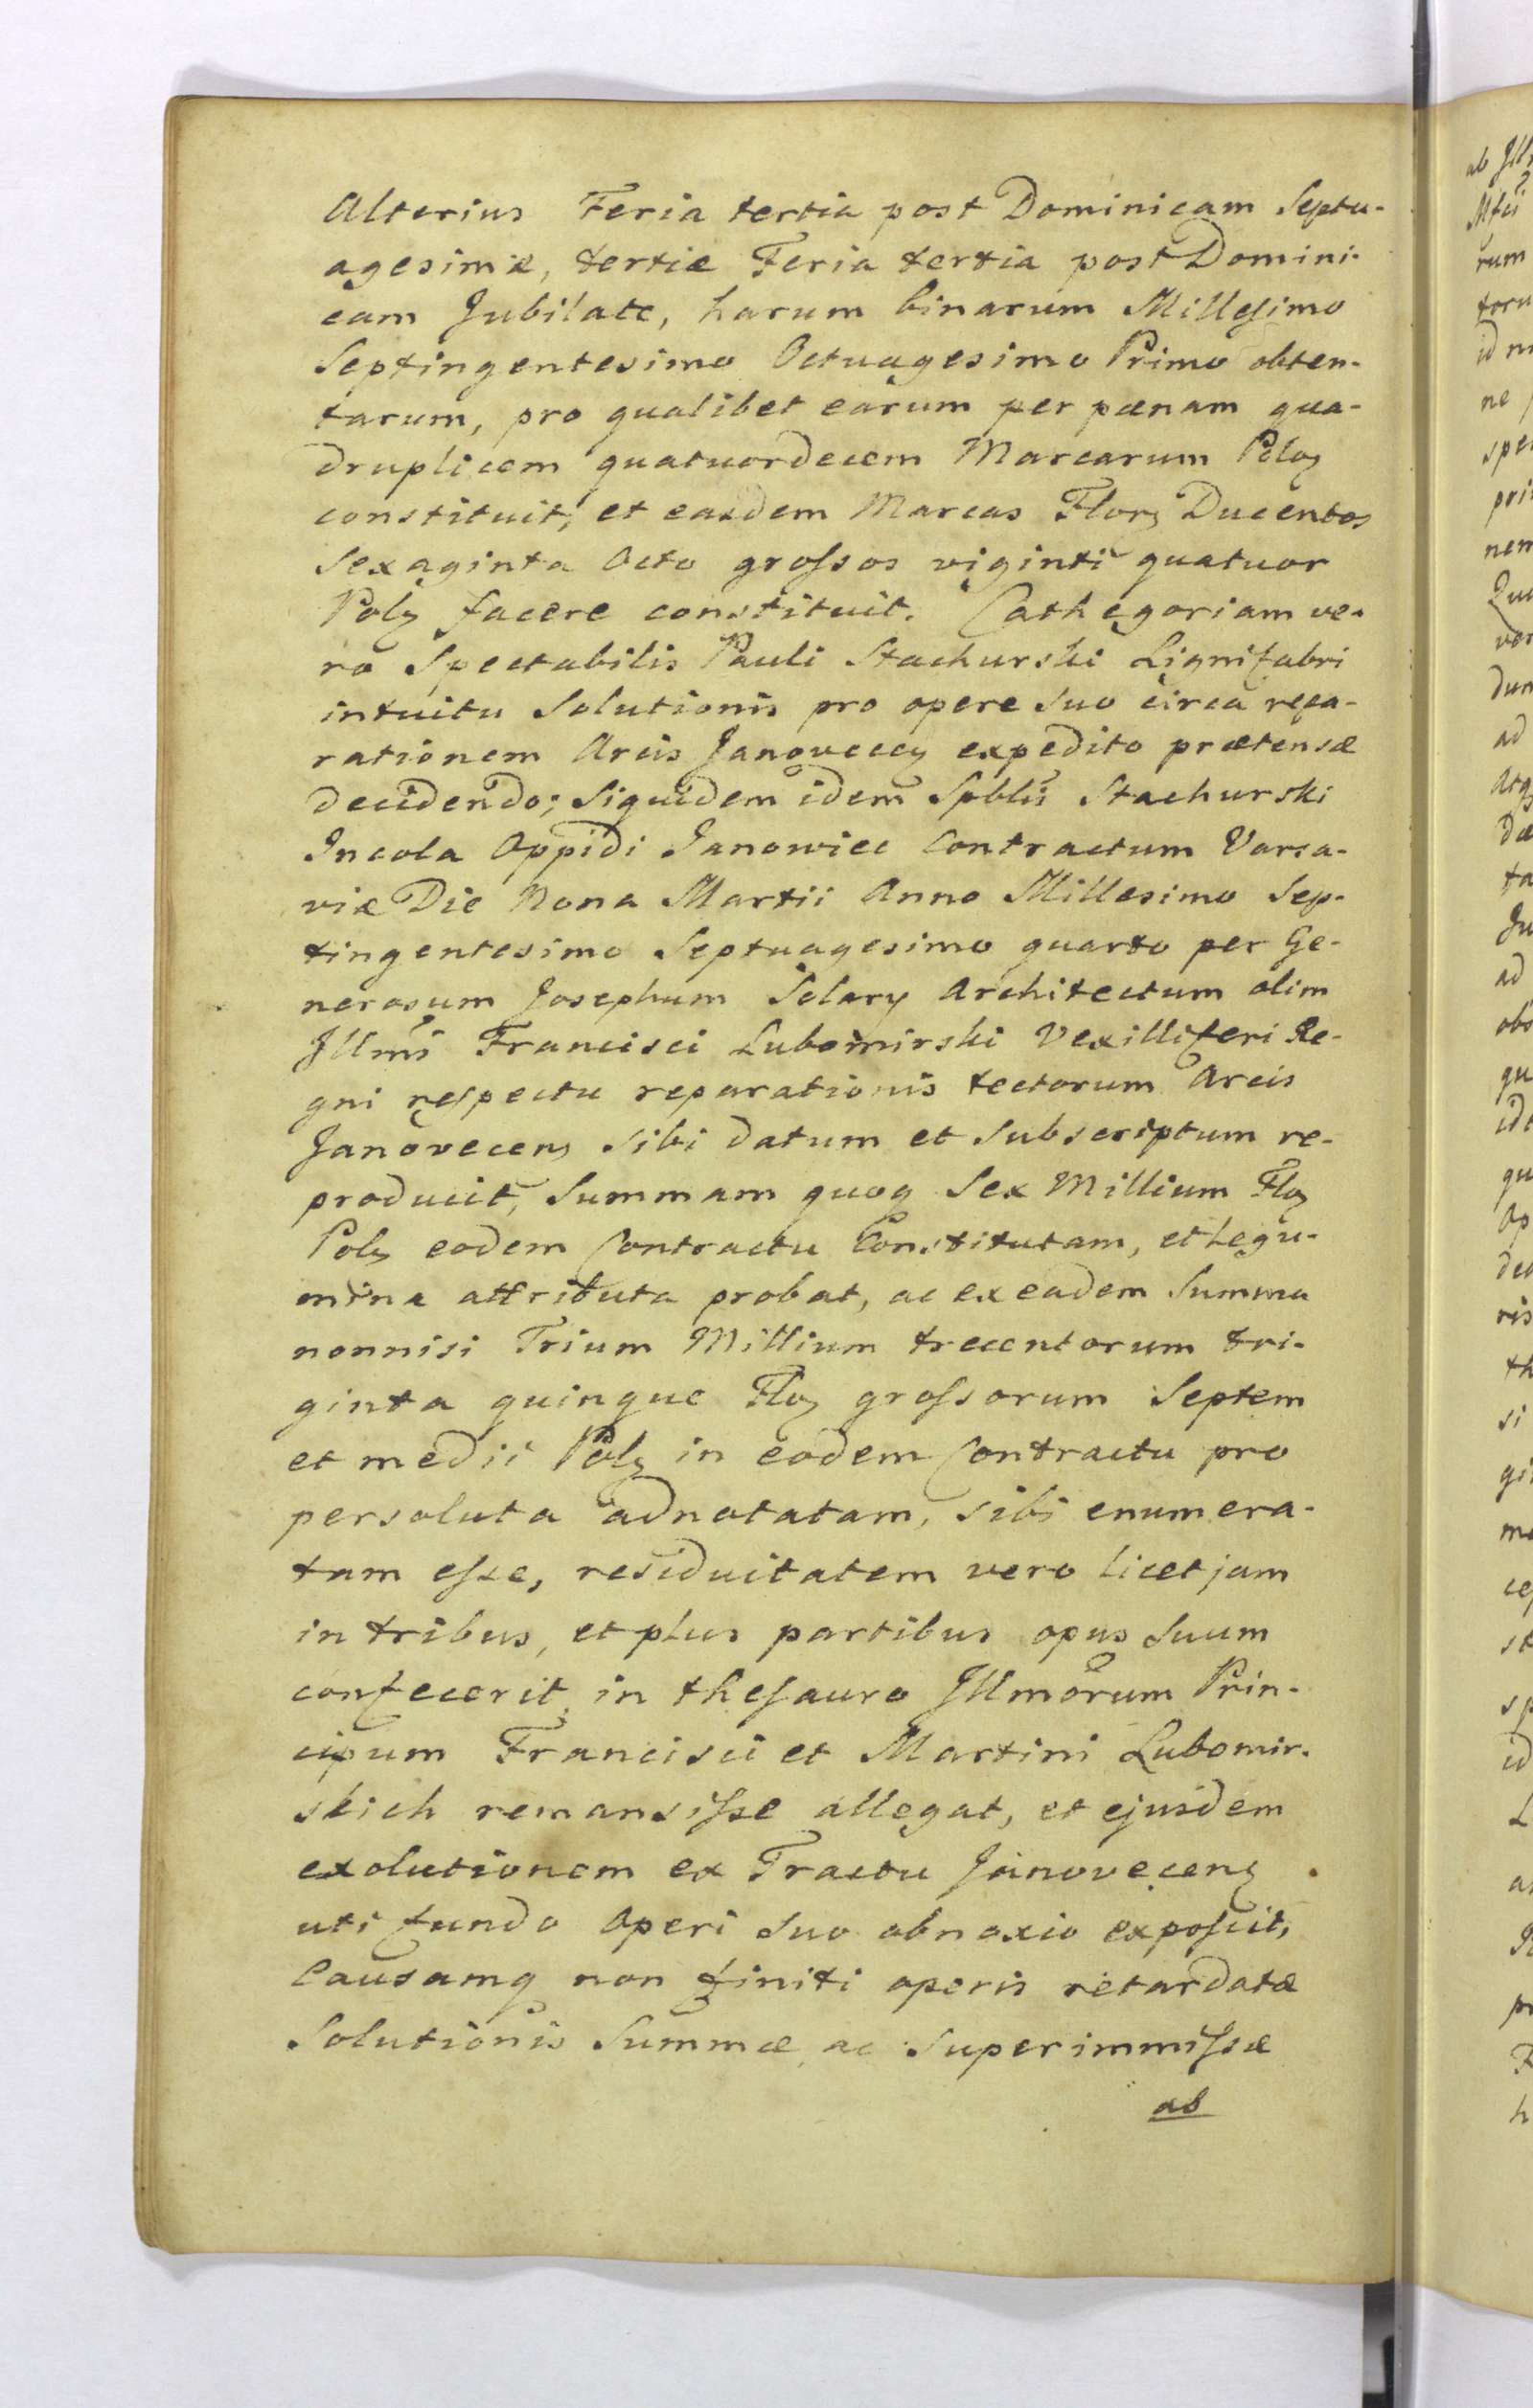 Alterius Feria tertia post Dominicam Septu-
agesimæ, tertiæ Feria tertia post Domini-
cam Jubilate, harum binarum Millesimo
Septingentesimo Octuagesimo Primo obten-
tarum, pro qualibet earum per pænam qua-
druplicem quatuordecem Marcarum Polo
constituit, et easdem Marcas Flor Ducentos
Sexaginta Octo grossos viginti quatuor
Pol facere constituit. Cathegoriam ve-
ro Spectabilis Pauli Stachurski Lignifabri
intuitu Solutionis pro opere suo circa repa-
rationem Arcis Janovecen expedito prætensæ
decidendo; Siquidem idem Spblis Stachurski
Incola Oppidi Janowiec Contractum Varsa-
viæ Die Nona Martii Anno Millesimo Sep-
tingentesimo Septuagesimo quarto per Ge-
nerosum Josephum Solary Architectum olim
Illmi Francisci Lubomirski Vexilliferi Re-
gni respectu reparationis tectorum Arcis
Janovecens sibi datum et subscriptum re-
producit, Summam quoq Sex Millium Flo
Pol eodem Contractu Constitutam, et Legu-
mina attributa probat, ac ex eadem Summa
nonnisi Trium Millium trecentorum tri-
ginta quinque Flo grossorum Septem
et medii Pol in eodem Contractu pro
persoluta adnotatam, sibi enumera-
tam esse, residuitatem vero licet jam
in tribus, et plus partibus opus suum
confecerit, in thesauro Illmorum Prin-
cipum Francisci et Martini Lubomir-
skich remansisse allegat, et ejusdem
exolutionem ex Tractu Janovecens
uti fundo Operi suo obnoxio exposcit,
Causamq non finiti operis retardatæ
Solutionis Summæ ac Superimmissæ
ab
ab
rum
ne
ad
Ju
ad
qu
si
L